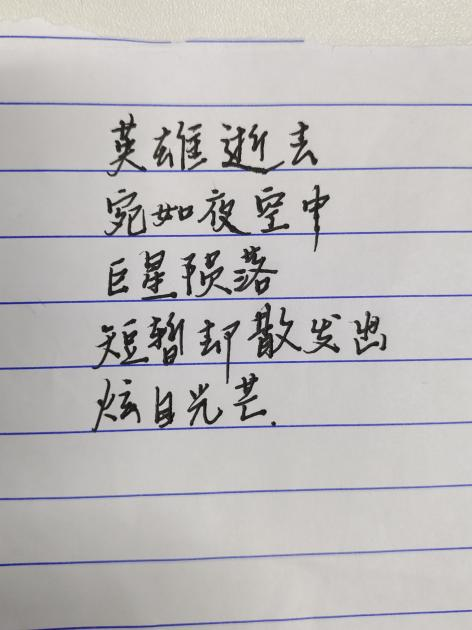 英雄逝去
宛如夜空中
巨星陨落
短暂却散发出
炫目光芒.